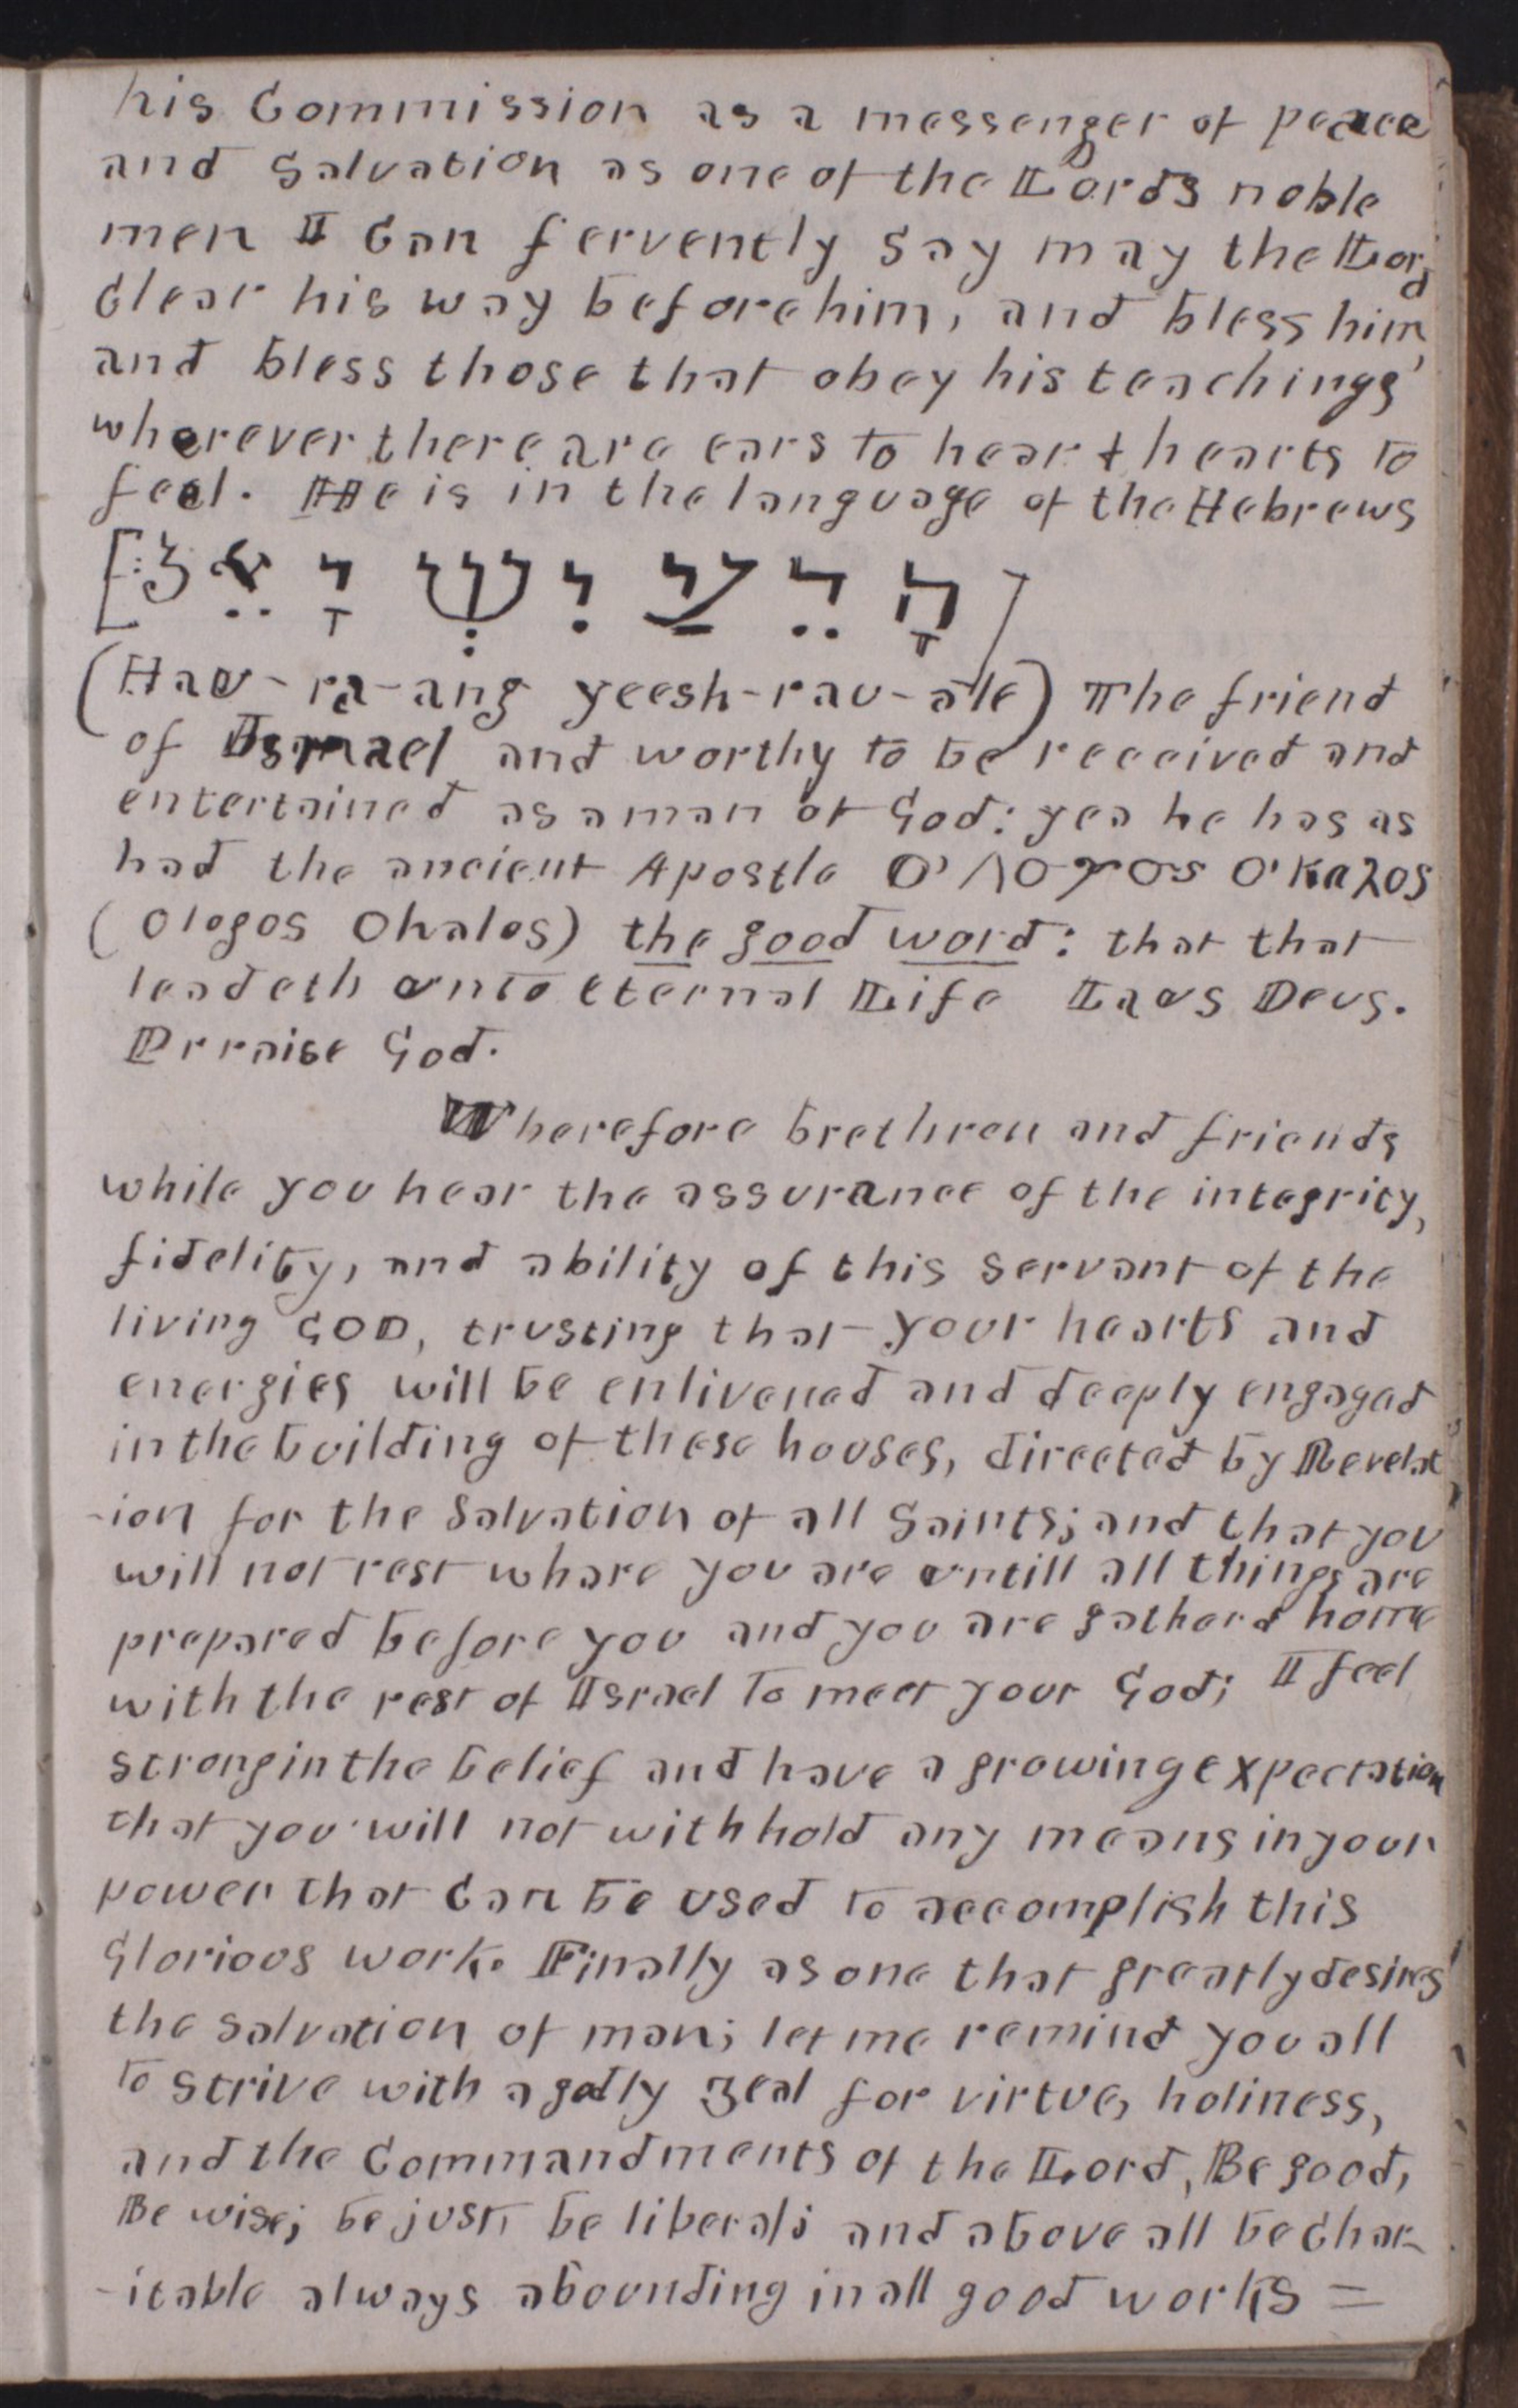 his Commission as a messenger of peace
and Salvation as one of the Lords noble
men I Can fervently Say may the Lord
Clear his way before him, and bless him,
and bless those that obey his teachings
wherever there are ears to hear & hearts to
feel. He is in the language of the Hebrews
(Hau-ra-ang yeesh-rau-ale) The friend
of Israel and worthy to be received and
entertained as a man of God: yea he has as
had the ancient Apostle O' Λογος O' Καλος
(Ologos Okalos) the good word: that that
leadeth unto eternal Life Laus Deus.
Prraise God.
Wherefore brethren and friends
while you hear the assurance of the integrity,
fidelity, and ability of this servant of the
living GOD, trusting that your hearts and
energies will be enlivened and deeply engaged
in the building of these houses, directed by Revelat
-ion for the Salvation of all Saints; and that you
will not rest whare you are untill all things are
prepared before you and you are gatherd home
with the rest of Israel to meet your God; I feel
strong in the belief and have a growing expectation
that you will not with hold any means in your
power that Can be used to accomplish this
Glorious work. Finally as one that greatly desires
the salvation of man; let me remind you all
to strive with a godly zeal for virtue, holiness,
and the Commandments of the Lord, Be good,
Be wise; be just, be liberal; and above all be Char-
-itable always abounding in all good works =